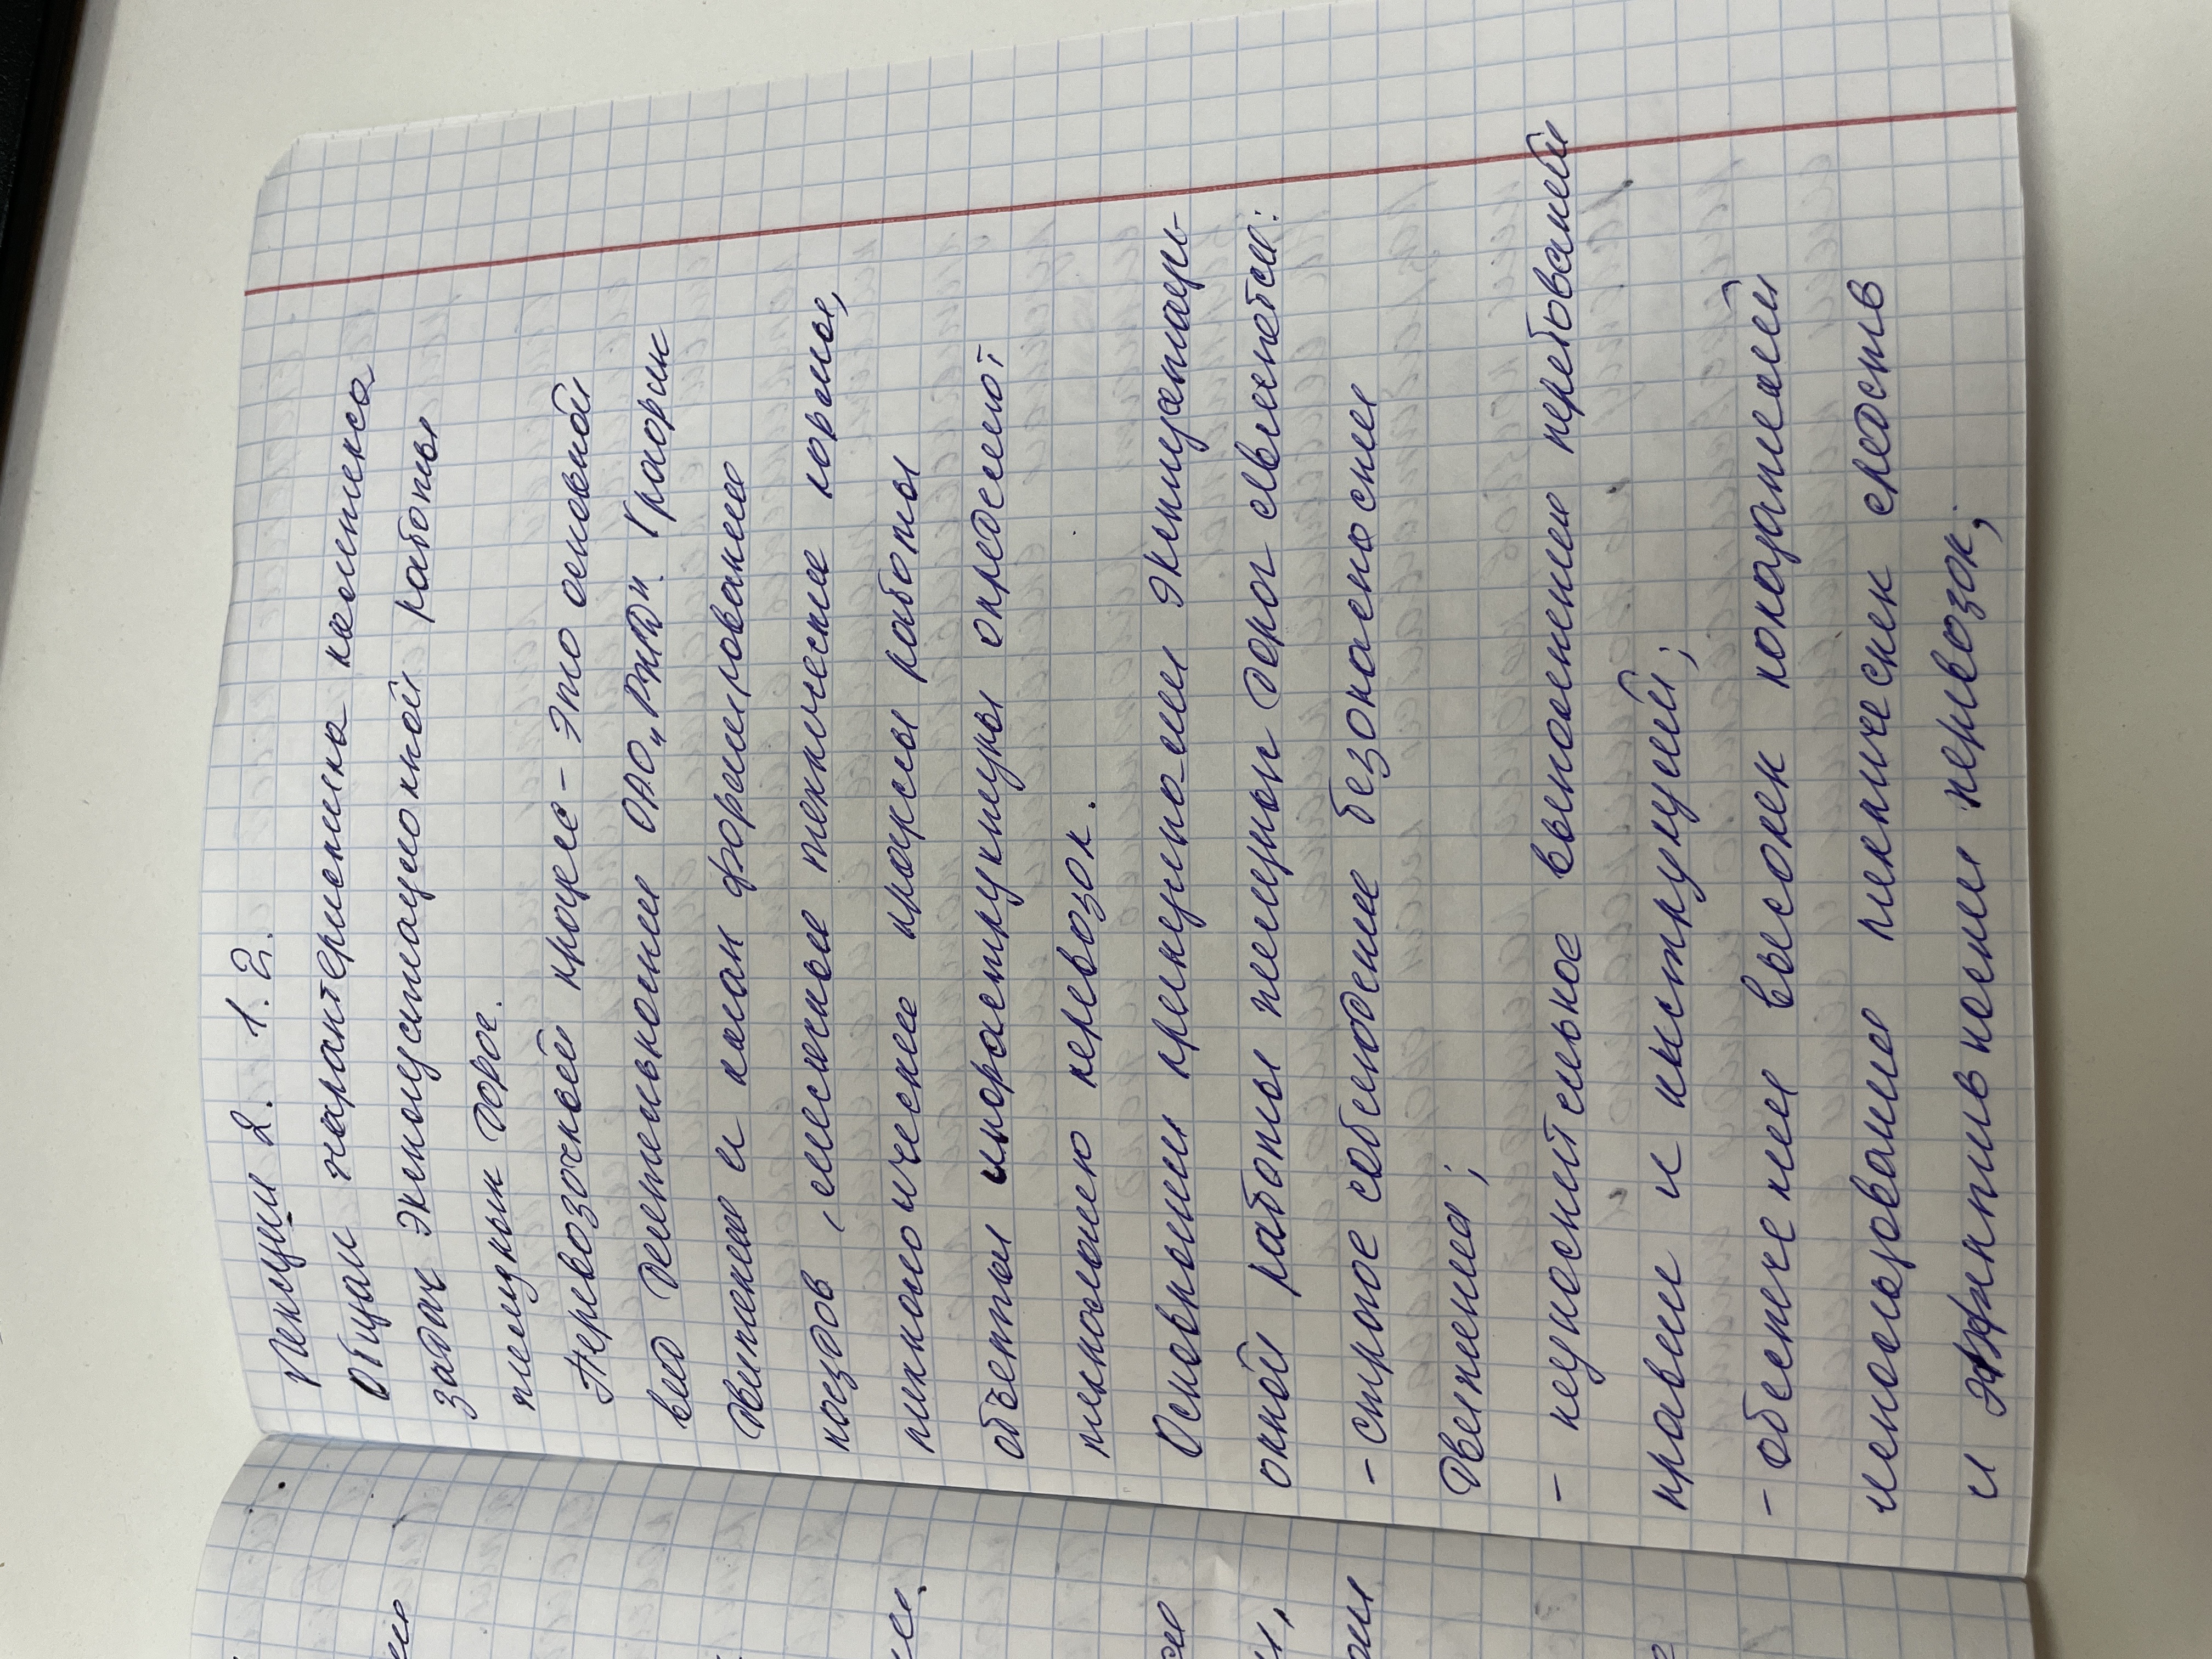 Лекция 2. 1.2.
Общая характеристика комплекса
задач эксплуатационной работы
железных дорог.
Перевозочный процесс - это основной
вид деятельности ОАО „РЖД". График
движения и план формирования
поездов, месячные технические нормы,
технологические процессы работы
объектов инфраструктуры определяют
технологию перевозок.
Основными принципами эксплуатаци-
онной работы железных дорог являются:
- строгое соблюдение безопасности
движения;
- неукоснительное выполнение требований
правил и инструкций;
- обеспечение высоких показателей
использования технических средств
и эффективности перевозок;